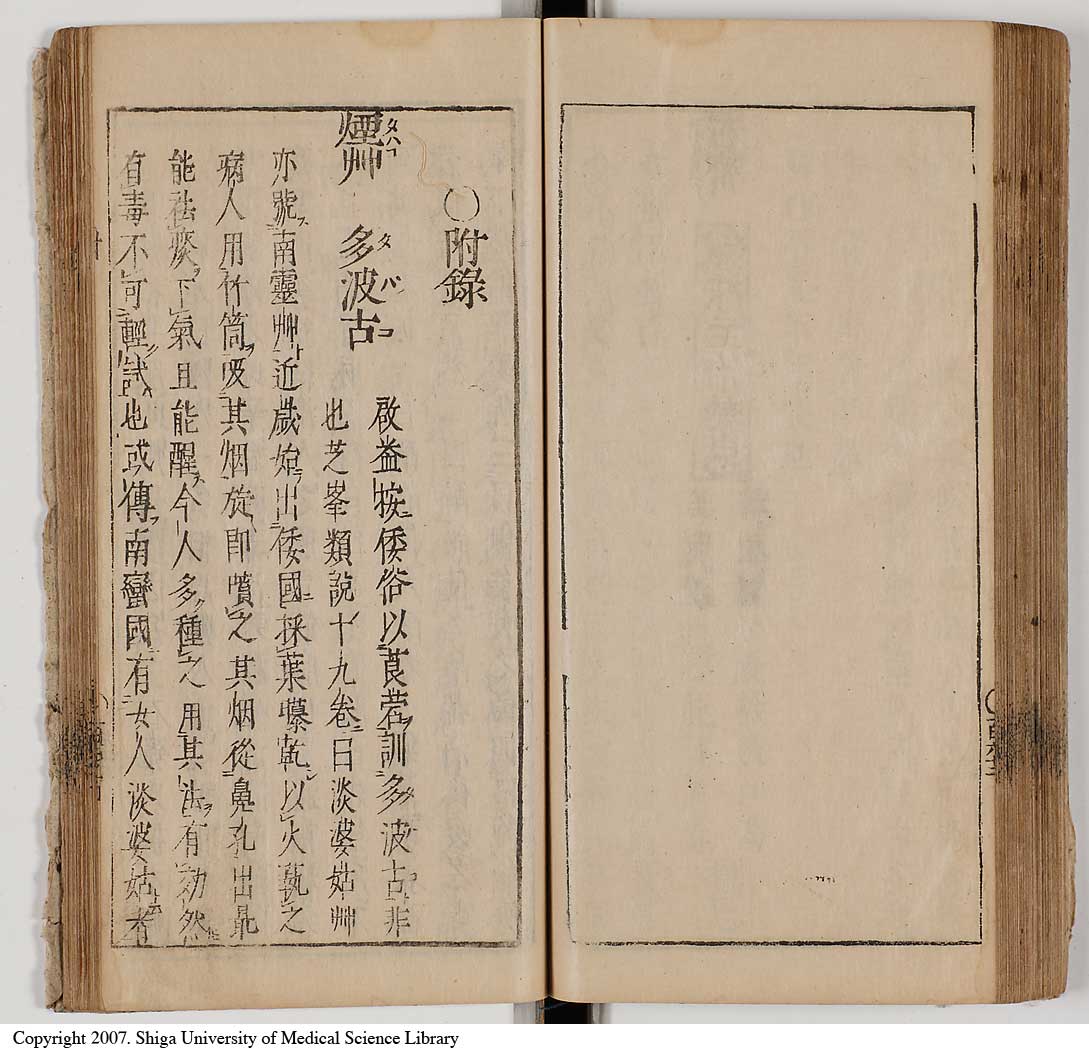 ○附錄
煙艸 タハコ 多波古 タバコ
啟益按倭俗以莨菪訓多波古非
也芝峯類說十九卷曰淡婆姑艸
亦號南靈艸近歲始出倭國採葉曝乾以火爇之
病人用竹筒吸其烟旋即噴之其烟從鼻孔出最
能祛痰下氣且能醒今人多種之用其法有効然
有毒不可輕試也或傳南蠻國有女人淡婆姑者
Copyright 2007. Shiga University of Medical Science Library